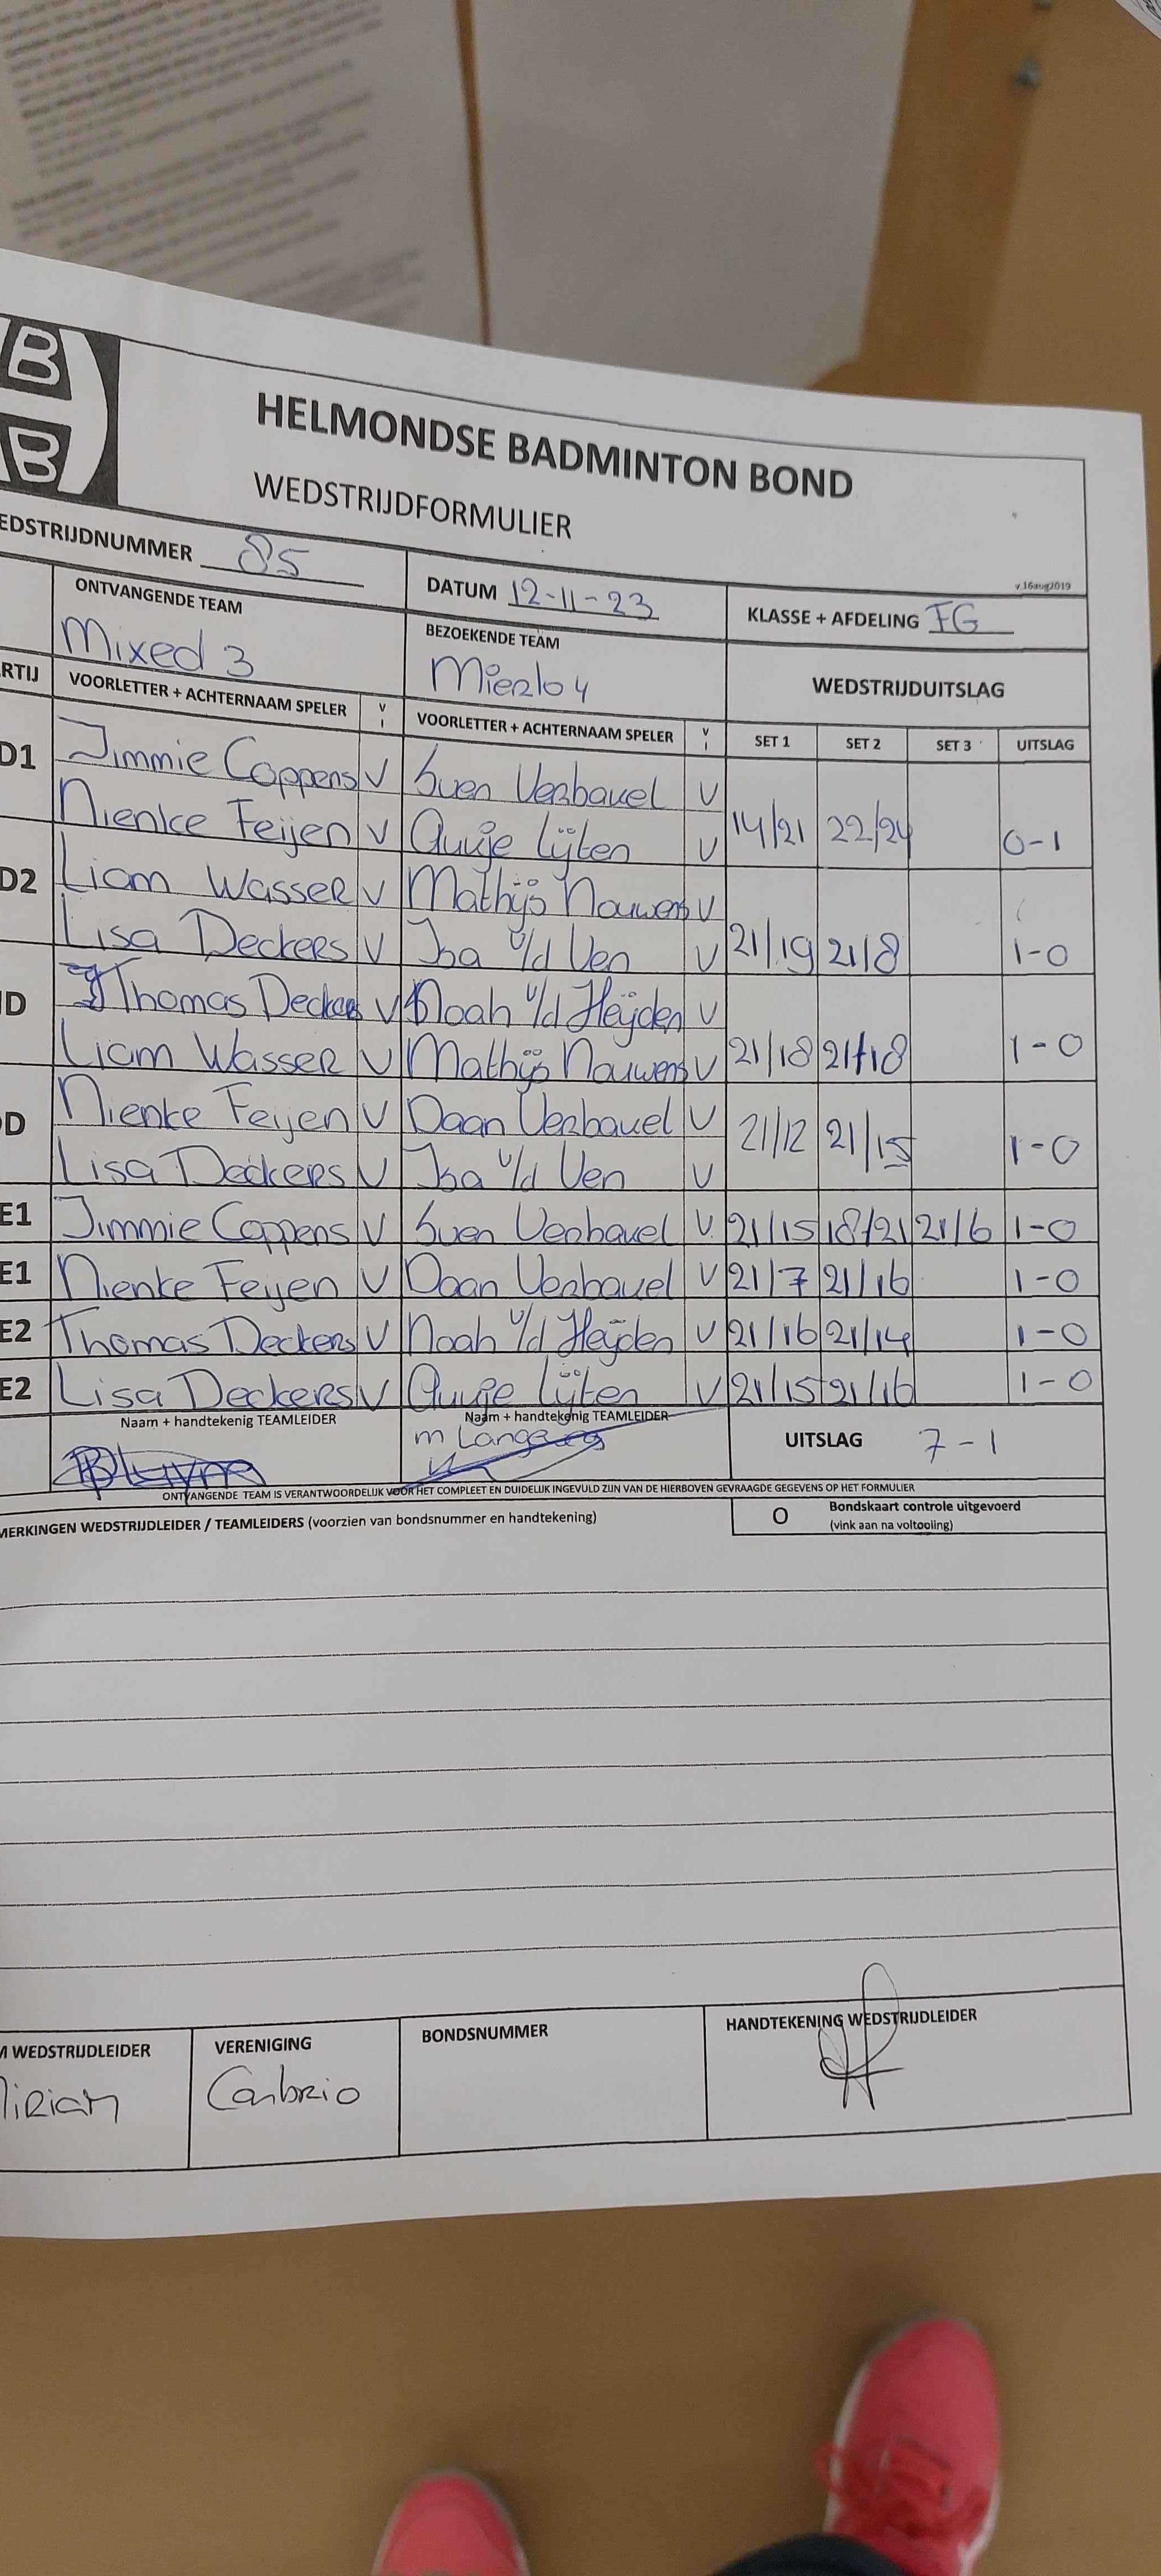 B
B
HELMONDSE BADMINTON BOND
WEDSTRIJDFORMULIER
v.16aug2019
EDSTRIJDNUMMER 85
DATUM 12-11-23
KLASSE + AFDELING FG
ONTVANGENDE TEAM
Mixed 3
BEZOEKENDE TEAM
Mierlo 4
WEDSTRIJDUITSLAG
RTIJ VOORLETTER + ACHTERNAAM SPELER V I VOORLETTER + ACHTERNAAM SPELER V I SET 1 SET 2 SET 3 UITSLAG
D1 Jimmie Coppens V Sven Verbavel V
Nienke Feijen V Guusje Lijten V 14/21 22/24 0-1
D2 Liam Wasser V Mathijs Nouwens V
Lisa Deckers V Isa v/d Ven V 21/19 21/8 1-0
D Thomas Deckers V Noah v/d Heijden V
Liam Wasser V Mathijs Nouwens V 21/18 21/18 1-0
D Nienke Feijen V Daan Verbavel V 21/12 21/15 1-0
Lisa Deckers V Isa v/d Ven V
E1 Jimmie Coppens V Sven Verbavel V 21/15 18/21 21/6 1-0
E1 Nienke Feijen V Daan Verbavel V 21/7 21/16 1-0
E2 Thomas Deckers V Noah v/d Heijden V 21/16 21/14 1-0
E2 Lisa Deckers V Guusje Lijten V 21/15 21/16 1-0
Naam + handtekenig TEAMLEIDER
Naam + handtekenig TEAMLEIDER
m
UITSLAG 7-1
ONTVANGENDE TEAM IS VERANTWOORDELIJK VOOR HET COMPLEET EN DUIDELIJK INGEVULD ZIJN VAN DE HIERBOVEN GEVRAAGDE GEGEVENS OP HET FORMULIER
MERKINGEN WEDSTRIJDLEIDER / TEAMLEIDERS (voorzien van bondsnummer en handtekening)
O Bondskaart controle uitgevoerd
(vink aan na voltooiing)
M WEDSTRIJDLEIDER
VERENIGING
BONDSNUMMER
HANDTEKENING WEDSTRIJDLEIDER
iriam
Carbrio